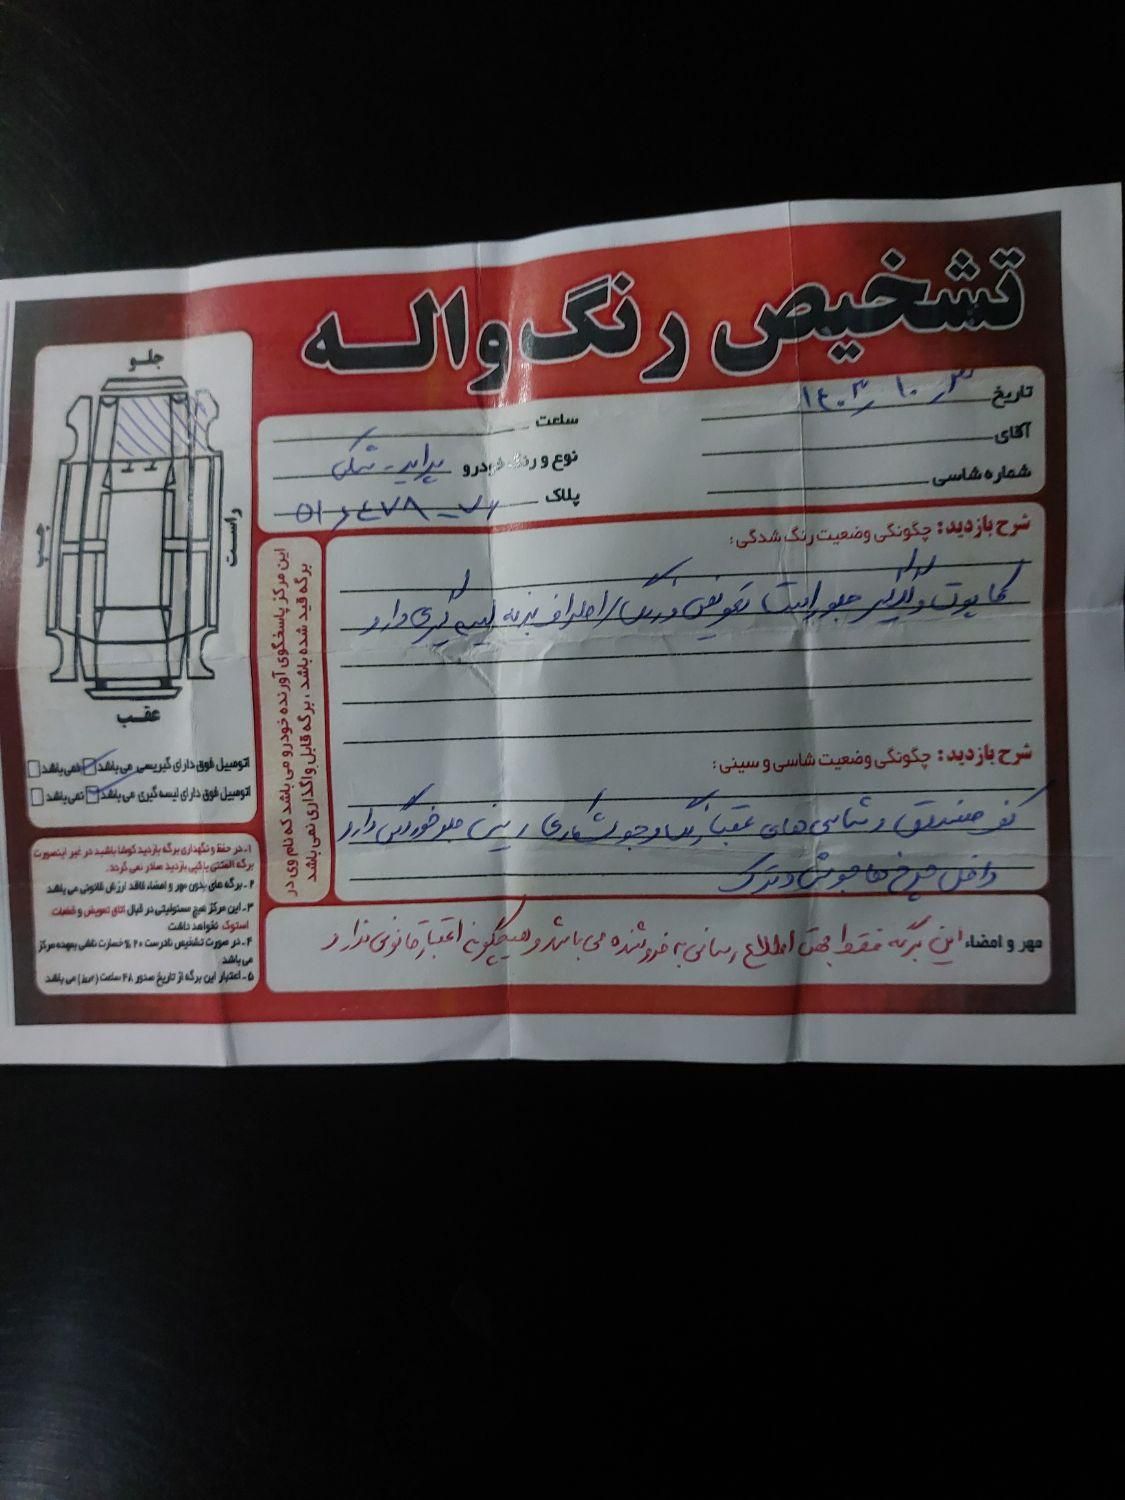 تشخیص رنگ واله
تاریخ ۱۴۰۳٫۱۰٫۳
آقای
شماره شاسی
ساعت
نوع و رنگ خودرو پراید - مشکی
پلاک
شرح بازدید: چگونگی وضعیت رنگ شدگی:
کاپوت و گلگیر جلو راست تعویض و رنگ / اطراف بدنه لیسه گیری دارد
شرح بازدید: چگونگی وضعیت شاسی و سینی:
کف صندوق و شاسی های عقب رنگ و جوشکاری سینی جلو خوردگی دارد
داخل چرخ ها جوش و ترک
مهر و امضاء این برگه فقط جهت اطلاع رسانی به فروشنده می باشد و هیچگونه اعتبار قانونی ندارد
این مرکز پاسخگوی آورنده خودرو می باشد که نام وی در
برگه قید شده باشد، برگه قابل واگذاری نمی باشد
جلو
راست
چپ
عقب
اتومبیل فوق دارای گیریسی می باشد نمی باشد
اتومبیل فوق دارای لیسه گیری می باشد نمی باشد
۱- در حفظ و نگهداری برگه بازدید کوشا باشید در غیر اینصورت
برگه المثنی یا کپی بازدید صادر نمی گردد.
۲- برگه های بدون مهر و امضاء فاقد ارزش قانونی می باشد
۳- این مرکز هیچ مسئولیتی در قبال اتاق تعویض و قطعات
استوک نخواهد داشت
۴- در صورت تشخیص نادرست ۲۰٪ خسارت ناشی بعهده مرکز
می باشد
۵- اعتبار این برگه از تاریخ صدور ۴۸ ساعت می باشد